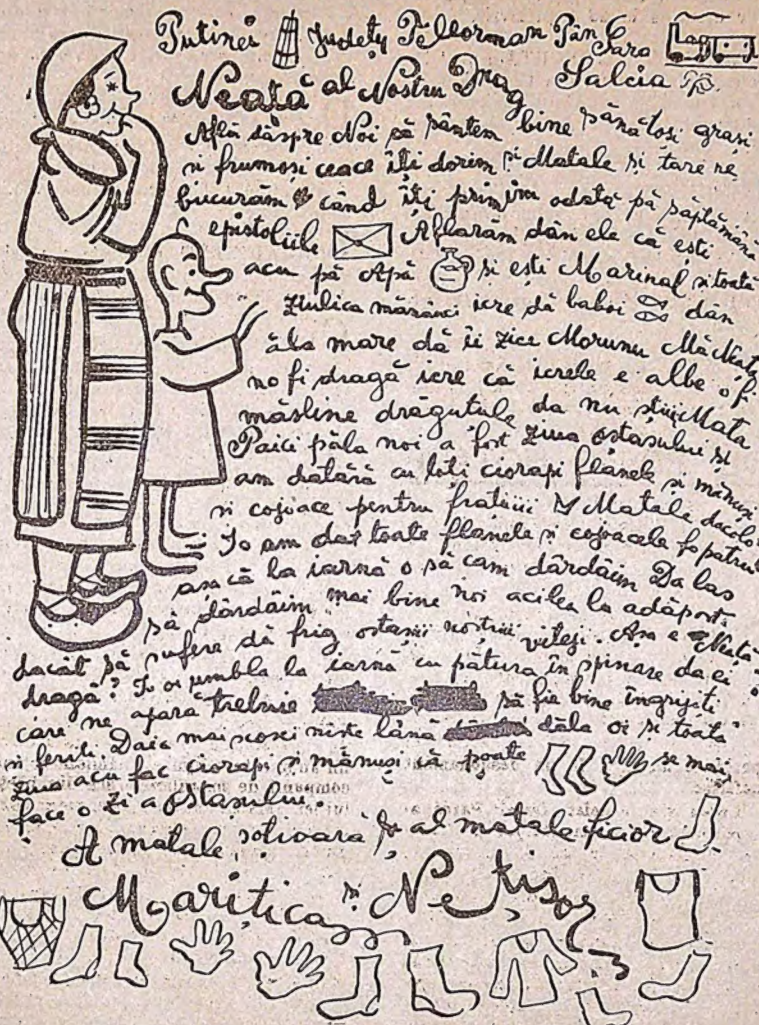 Putinei Județu Tèllorman Pân Gara
Salcia
Neață al Nostru Drag
Află dăspre Noi că sântem bine sănătoși grași
și frumoși ceace îți dorim și Matale și tare ne
bucurăm când îți primim odată pă săptămână
epistoliile Aflarăm dân ele că ești
acu pă Apă și ești Marinal și toată
ziulica mănânci icre dă baboi dân
ăla mare dă îi zice Morunu Mă Neață
no fi dragă icre că icrele e albe o fi
măsline drăguțule da nu știi Mata
Paici păla noi a fost ziua ostașului și
am dat cu toți ciorapi flanele și mănuși
și cojoace pentru frații Matale dacolo
Io am dat toate flanele și cojoacele
așa că la iarnă o să cam dârdâim Da las
să dârdâim mai bine noi acilea la adăpost
dacât să sufere dă frig ostașii noștrii viteji. Așa e Neață
dragă? Io oi umbla la iarnă cu pătura în spinare da ei
care ne apără trebuie să fie bine îngrijiți
și feriți. Daia mai scosei niște lână dăla oi și toată
ziua acu fac ciorapi și mănuși că poate se mai
face o zi a ostașului.
A matale soțioară și al matale ficior
Marițica și Nețișor